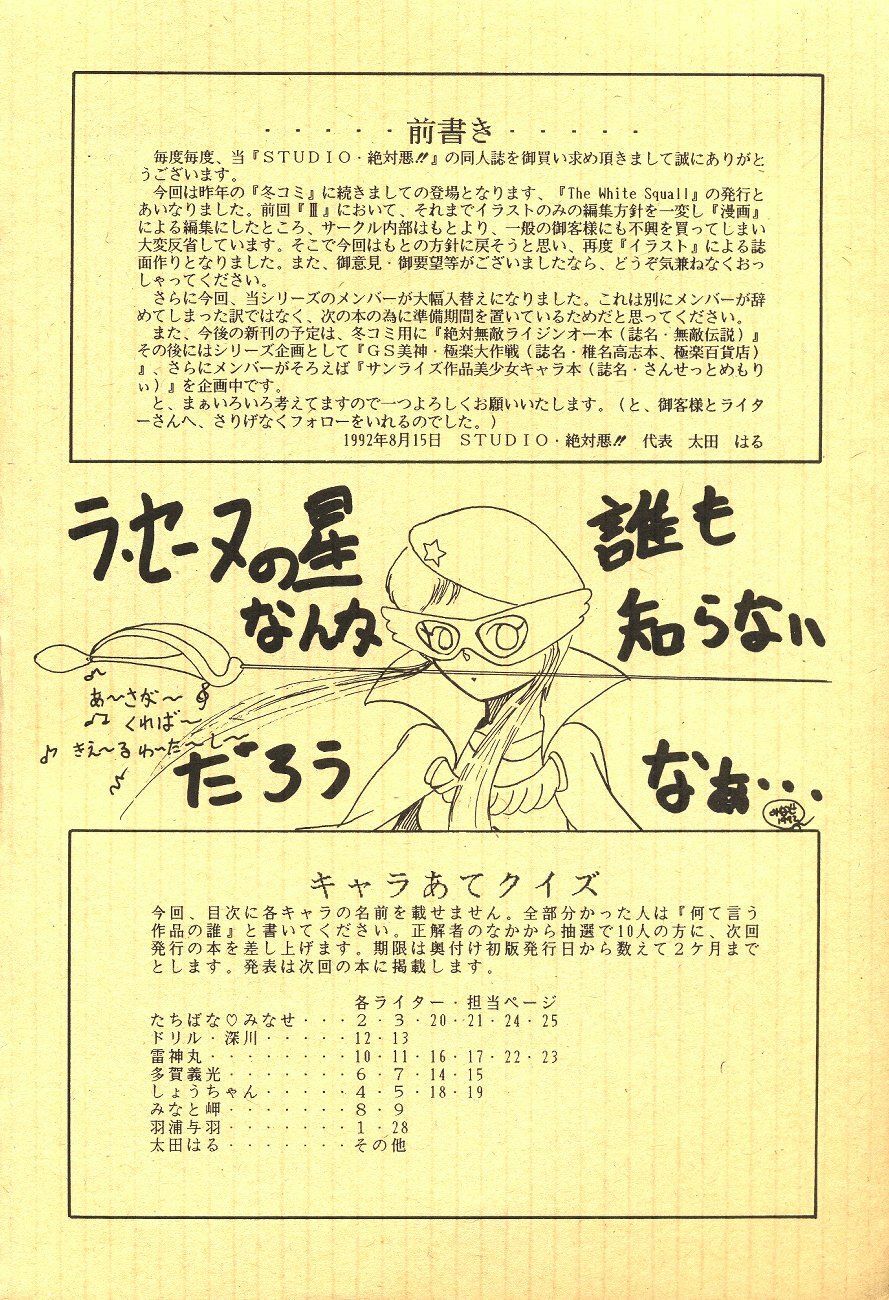 ・・・・・前書き・・・・・
毎度毎度、当『ＳＴＵＤＩＯ・絶対悪!!』の同人誌を御買い求め頂きまして誠にありがと
うございます。
今回は昨年の『冬コミ』に続きましての登場となります、『The White Squall』の発行と
あいなりました。前回『Ⅲ』において、それまでイラストのみの編集方針を一変し『漫画』
による編集にしたところ、サークル内部はもとより、一般の御客様にも不興を買ってしまい
大変反省しています。そこで今回はもとの方針に戻そうと思い、再度『イラスト』による誌
面作りとなりました。また、御意見・御要望等がございましたなら、どうぞ気兼ねなくおっ
しゃってください。
さらに今回、当シリーズのメンバーが大幅入替えになりました。これは別にメンバーが辞
めてしまった訳ではなく、次の本の為に準備期間を置いているためだと思ってください。
また、今後の新刊の予定は、冬コミ用に『絶対無敵ライジンオー本（誌名・無敵伝説）』
その後にはシリーズ企画として『ＧＳ美神・極楽大作戦（誌名・椎名高志本、極楽百貨店）
』、さらにメンバーがそろえば『サンライズ作品美少女キャラ本（誌名・さんせっとめもり
ぃ）』を企画中です。
と、まぁいろいろ考えてますので一つよろしくお願いいたします。（と、御客様とライタ
ーさんへ、さりげなくフォローをいれるのでした。）
1992年8月15日　ＳＴＵＤＩＯ・絶対悪!!　代表　太田　はる
ラ・セーヌの星
なんか
誰も
知らない
だろう
なあ・・・
あ～さが～
くれば～
きえ～る わ～た～し～
1992
キャラあてクイズ
今回、目次に各キャラの名前を載せません。全部分かった人は『何て言う
作品の誰』と書いてください。正解者のなかから抽選で10人の方に、次回
発行の本を差し上げます。期限は奥付け初版発行日から数えて２ケ月まで
とします。発表は次回の本に掲載します。
各ライター・担当ページ
たちばな♡みなせ・・・２・３・20・21・24・25
ドリル・深川・・・・・12・13
雷神丸・・・・・・・・10・11・16・17・22・23
多賀義光・・・・・・・６・７・14・15
しょうちゃん・・・・・４・５・18・19
みなと岬・・・・・・・８・９
羽浦与羽・・・・・・・１・28
太田はる・・・・・・・その他